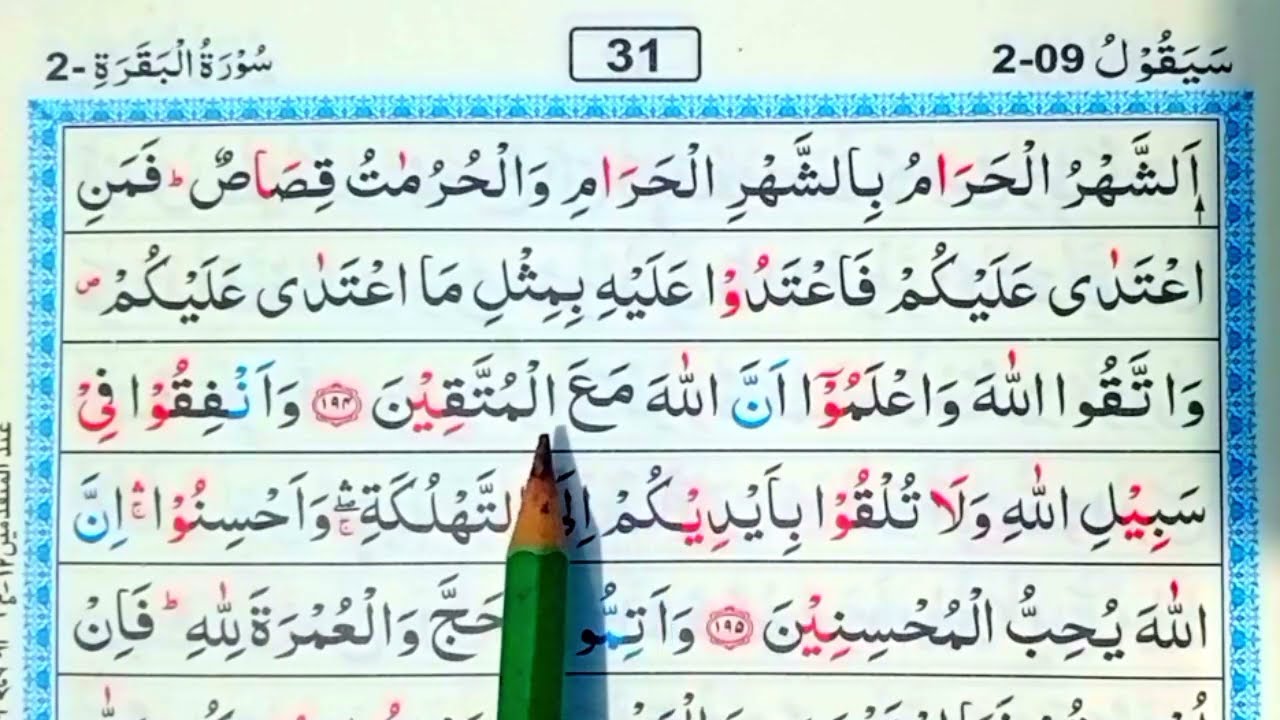 سَيَقُوْلُ 2-09
31
سُوْرَةُ الْبَقَرَةِ -2
اَلشَّهْرُ الْحَرَامُ بِالشَّهْرِ الْحَرَامِ وَالْحُرُمٰتُ قِصَاصٌ ؕ فَمَنِ
اعْتَدٰى عَلَيْكُمْ فَاعْتَدُوْا عَلَيْهِ بِمِثْلِ مَا اعْتَدٰى عَلَيْكُمْ ۪
وَاتَّقُوا اللّٰهَ وَاعْلَمُوْۤا اَنَّ اللّٰهَ مَعَ الْمُتَّقِيْنَ ۱۹۴ وَاَنْفِقُوْا فِيْ
سَبِيْلِ اللّٰهِ وَلَا تُلْقُوْا بِاَيْدِيْكُمْ اِلَى التَّهْلُكَةِ ۛۖۚ وَاَحْسِنُوْا ۛۚ اِنَّ
اللّٰهَ يُحِبُّ الْمُحْسِنِيْنَ ۱۹۵ حَجَّ وَالْعُمْرَةَ لِلّٰهِ ؕ فَاِنْ